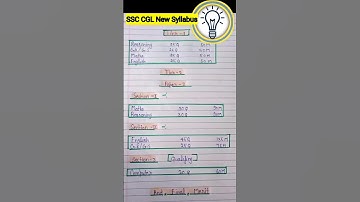 SSC CGL New Syllabus
Tier-1
Reasoning 25 Q 50 M
25 Q 50 M
Maths 25 Q 50 M
English 25 Q 50 M
Tier-2
Paper-1
Section-1
Maths 30 Q
Reasoning 30 Q
Section-2
English 45 Q
25 Q
Section-3 [Qualifying]
Computer 20 Q 60 M
And, Final, Merit